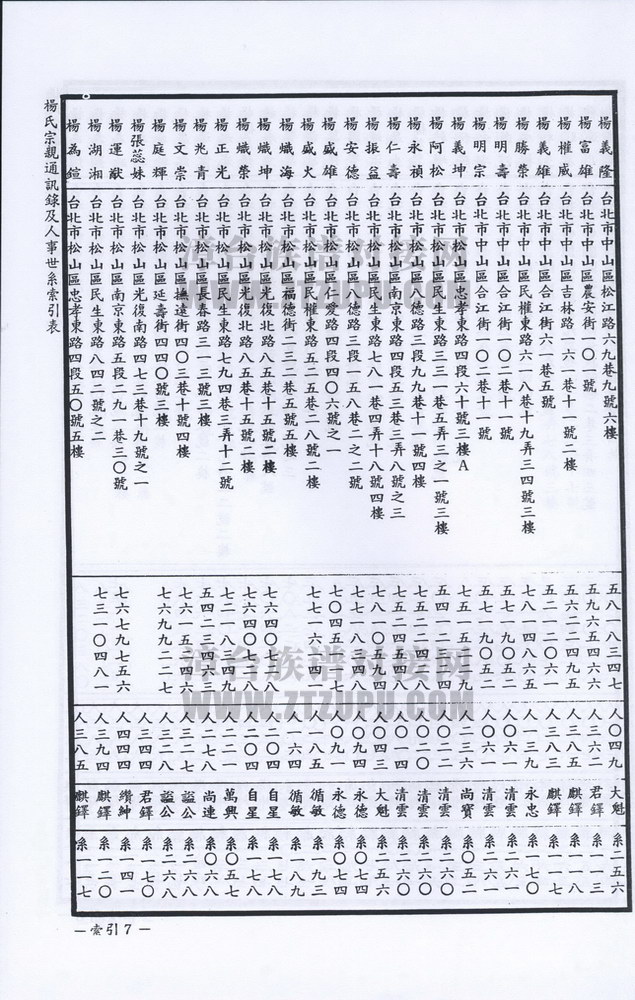 楊氏宗親通訊錄及人事世系索引表
楊義隆 台北市中山區松江路六九巷九號六樓 五八八三三四七 人〇四九 大魁 系二五六
楊富雄 台北市中山區農安街一〇一號 五九六五四六六 君鐸 系一一三
楊權威 台北市中山區吉林路一六一巷十一號二樓 麒鐸
楊義雄 台北市中山區合江街六一巷五號 五二一二〇六一 麒鐸
楊勝榮 台北市中山區民權東路六一八巷十九弄三四號三樓 七八一四八六五 人一三九 永忠 系一七〇
楊明壽 台北市中山區合江街一〇二巷十一號 人〇六一 清雲
楊明宗 台北市中山區合江街一〇二巷十一號 人〇六一 清雲
楊義坤 台北市松山區忠孝東路四段六十號三樓A 人二三六 尚寶 系〇五二
楊阿松 台北市松山區民生東路三三一巷五弄三之一號三樓 清雲 系二六〇
楊永禎 台北市松山區八德路三段九九巷十一號四樓 人〇二〇 清雲 系二六〇
楊仁壽 台北市松山區南京東路四段五三巷三弄八號之三 人〇一四 清雲 系二六〇
楊振益 台北市松山區民生東路七八一巷四弄十八號四樓 人〇四三 大魁 系二五六
楊安德 台北市松山區八德路三段一五八巷二之二號 永德 系〇七四
楊盛雄 台北市松山區仁愛路四段四〇六號之一 人〇九一 永德 系〇七四
楊盛火 台北市松山區民權東路五二五巷二八號二樓 人一八五 循敏
楊熾海 台北市松山區福德街二三二巷五號五樓 人一六四 循敏 系一八九
楊熾坤 台北市松山區光復北路八五巷十五號二樓 七六四〇七七八 人二〇四 自星 系一七八
楊熾榮 台北市松山區光復北路八五巷十五號二樓 七六四〇七七八 人二〇四 自星 系一七八
楊正光 台北市松山區民生東路七九四巷三弄十二號 七二一八三四九 人二二一 萬興 系〇五七
楊兆青 台北市松山區長春路三一三號三樓 人二七八 尚連 系〇六八
楊文崇 台北市松山區撫遠街四〇三巷十號四樓 謚公 系二六八
楊庭輝 台北市松山區延壽街四四〇號三樓 人三二八 謚公 系二六八
楊張蕊妹 台北市松山區光復南路四七三巷十九號之一 君鐸
楊運猷 台北市松山區南京東路五段二九一巷三〇號 七六七九七五六 人四四四 纘紳 系一四一
楊湖湘 台北市松山區民生東路八四二號之二 七三一〇四八一 人三九四 麒鐸 系一二〇
楊為鎧 台北市松山區忠孝東路四段五〇號五樓 人三八五 麒鐸 系一一七
—索引7—
漳台族谱对接网
WWW.ZTZUPU.COM
漳台族谱对接网
WWW.ZTZUPU.COM